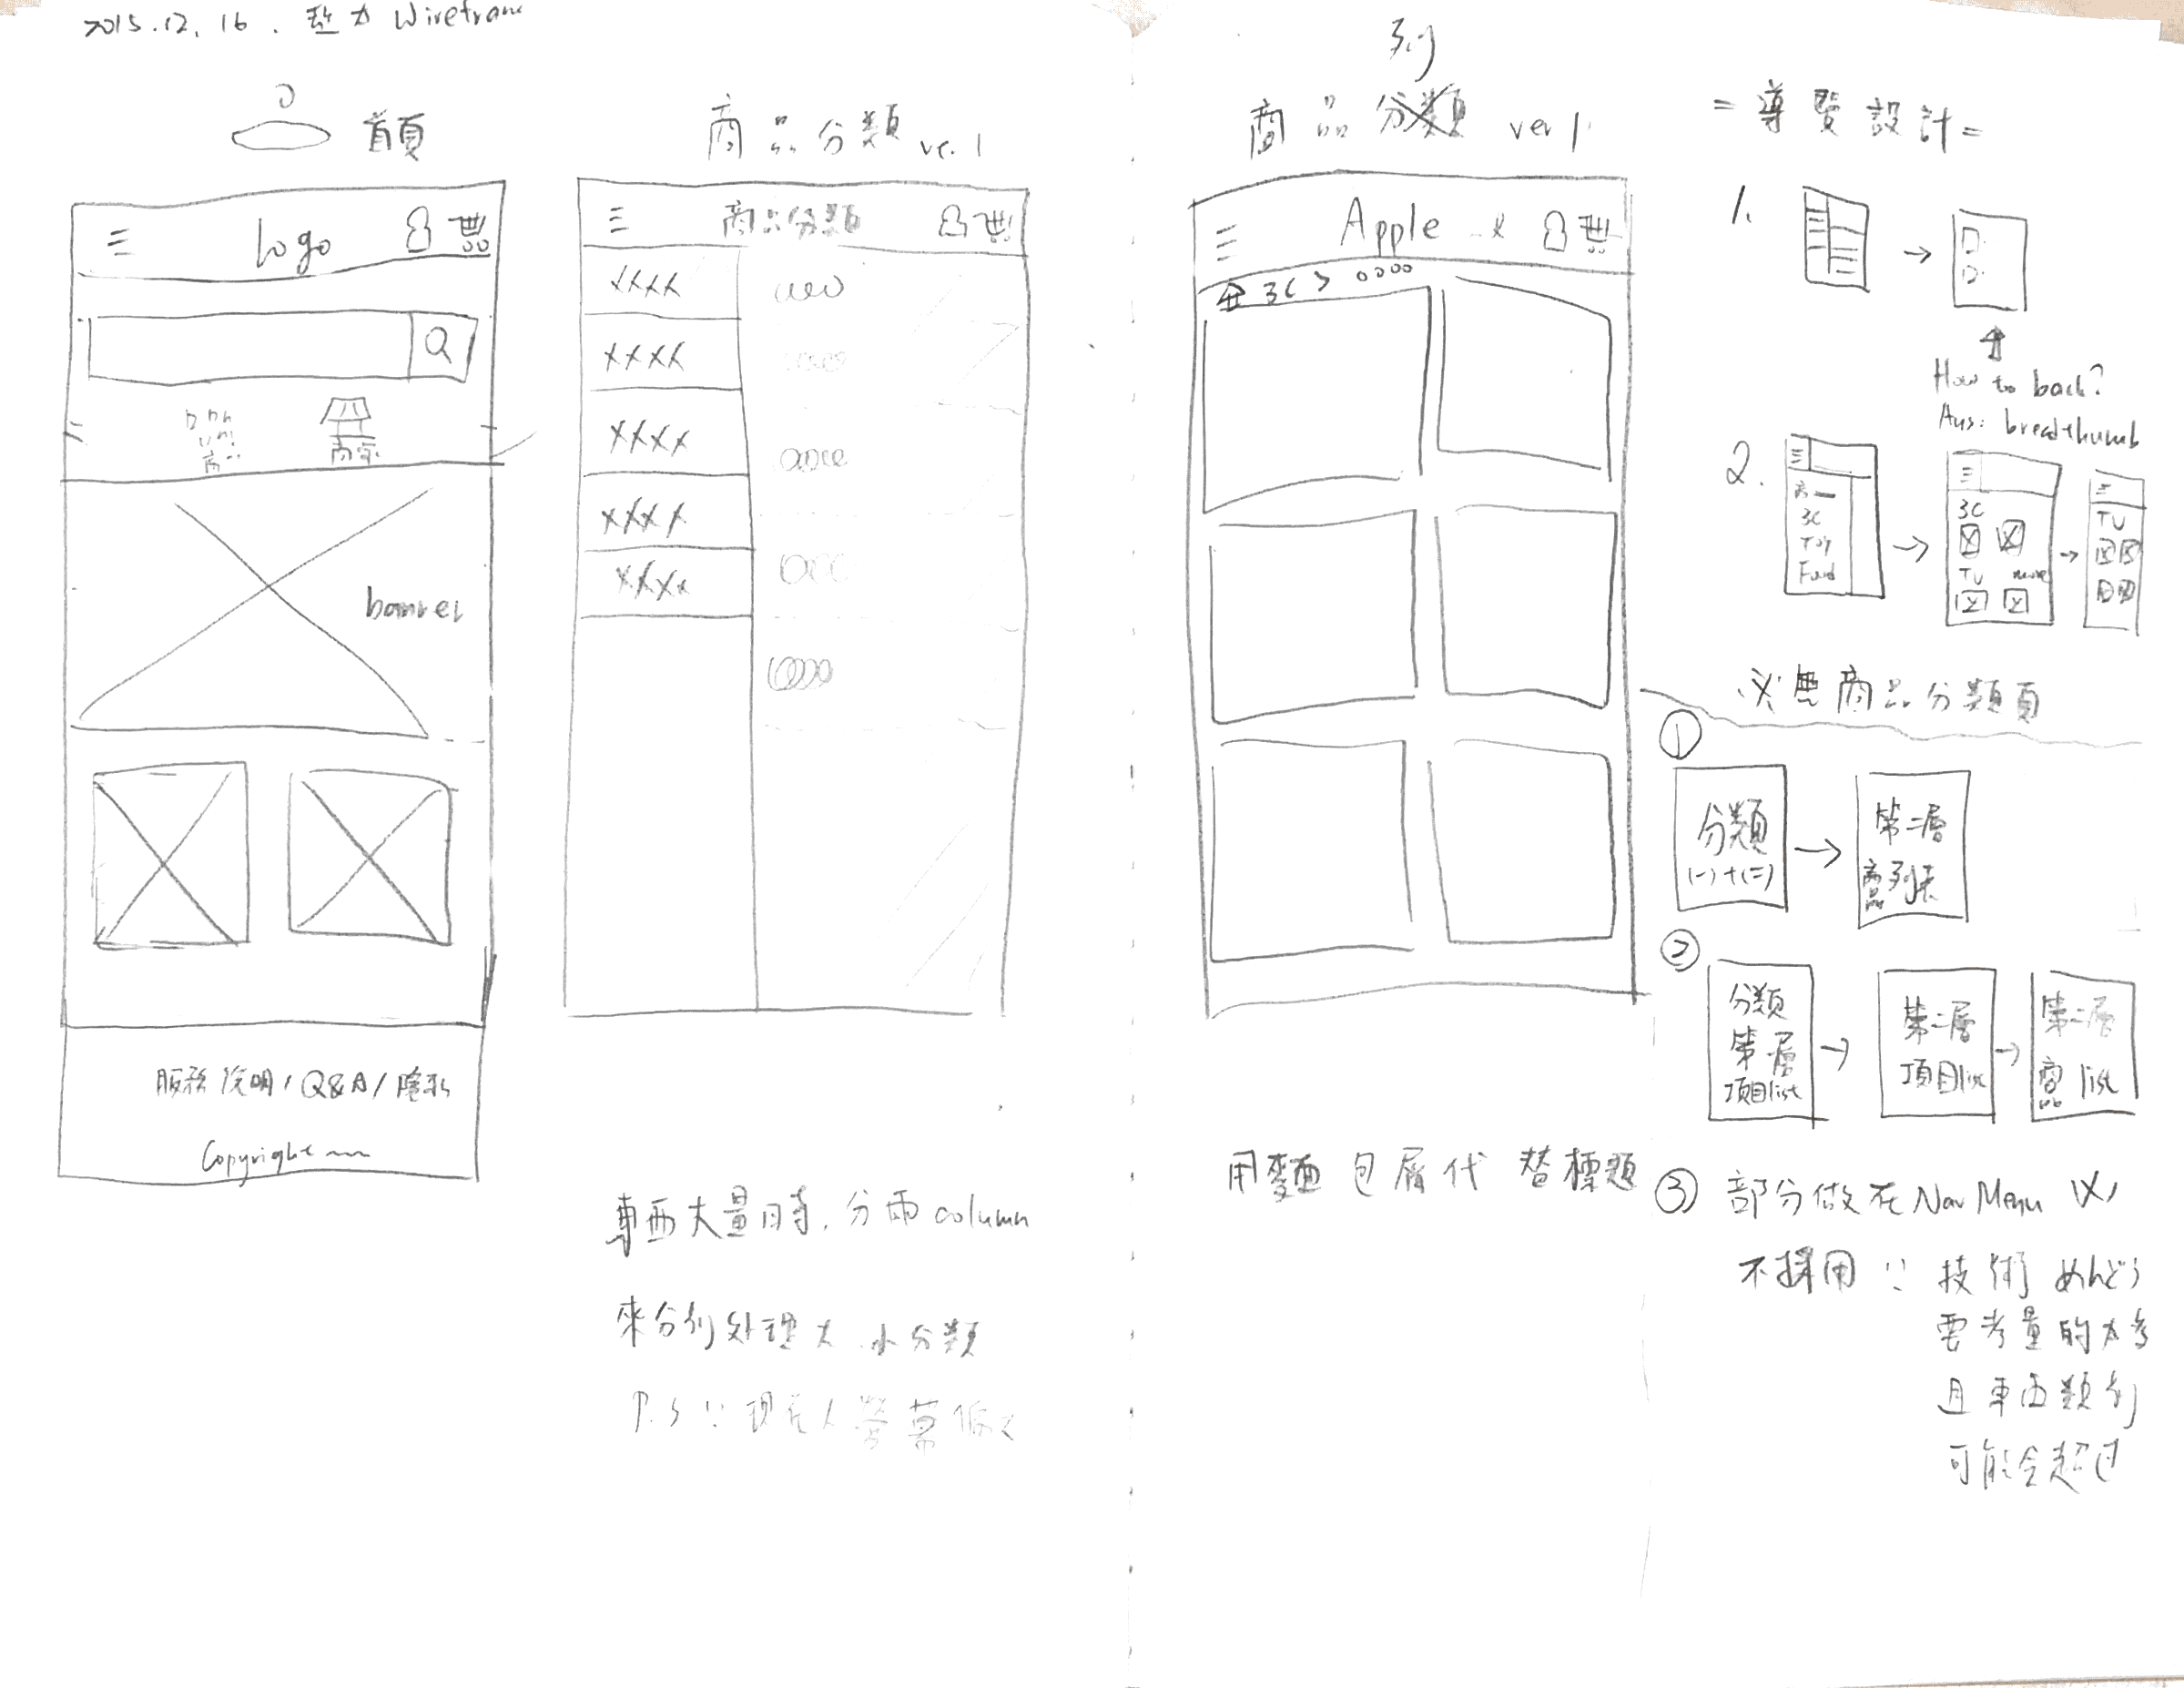 2015.12.16.
首頁
Logo
商家
banner
服務說明/Q&A/隱私
Copyright
商品分類 ver.1
商品分類
XXXX
XXXX
XXXX
XXXX
XXXX
東西大量時,分兩column
來分別處理大小分類
P.S
列
商品分類 ver 1.
Apple
3C > 0000
用麵包屑代替標題
=導覽設計=
1.
How to back?
Ans: breadthumb
2.
3C
Toy
Food
3C
TV more
TV
商品分類頁
①
分類
(一)+(二)
第二層
商品列表
②
分類
第一層
項目list
第二層
項目list
第二層
商品 list
③ 部分做在 Nav Menu
不採用 ∵ 技術 めんどう
要考量的太多
且東西類別
可能會超過